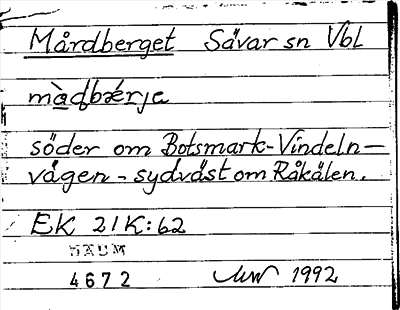 Mårdberget Sävar sn Vbl
mà̱ḍbǽrje
söder om Botsmark-Vindeln-
vägen - sydväst om Råkälen.
EK 21K:62
DAUM
4672 1992